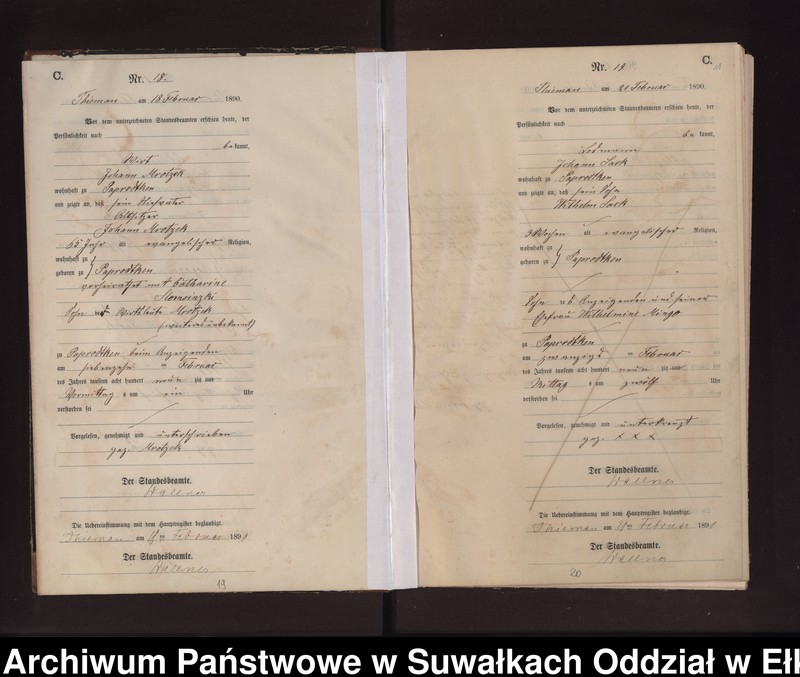 C.
Nr. 18.
Thieman am 18 Februar 1890.
Vor dem unterzeichneten Standesbeamten erschien heute, der
Persönlichkeit nach
be kannt,
Wirt
Johann Mrotzek
wohnhaft zu Paprodtken
und zeigte an, daß sein
Altsitzer
Johann Mrotzek
65 Jahr alt evangelischer Religion,
wohnhaft zu
geboren zu } Paprodtken
verheiratet mit Catharine
Sohn der Wirtsleute Mrotzek
zu Paprodtken beim Anzeigenden
am siebenzehn ten Februar
des Jahres tausend acht hundert neun zig um
Vormittag s um ein Uhr
verstorben sei
Vorgelesen, genehmigt und unterschrieben
gez. Mrotzek
Der Standesbeamte.
Wallner
Die Uebereinstimmung mit dem Hauptregister beglaubigt.
Thieman am Februar 1890
Der Standesbeamte.
Wallner
19
C.
Nr. 19.
Thieman am 21 Februar 1890.
Vor dem unterzeichneten Standesbeamten erschien heute, der
Persönlichkeit nach
be kannt,
Losmann
Johann Sack
wohnhaft zu Paprodtken
und zeigte an, daß sein Sohn
Wilhelm Sack
3 Wochen alt evangelischer Religion,
wohnhaft zu
geboren zu } Paprodtken
Sohn des Anzeigenden und seiner
Ehefrau Wilhelmine
zu Paprodtken
am zwanzigst ten Februar
des Jahres tausend acht hundert neun zig um
Mittag s um zwölf Uhr
verstorben sei
Vorgelesen, genehmigt und unterkreuzt
gez. x x x
Der Standesbeamte.
Wallner
Die Uebereinstimmung mit dem Hauptregister beglaubigt.
Thieman am Februar 1890
Der Standesbeamte.
Wallner
20
Archiwum Państwowe w Suwałkach Oddział w Ełk